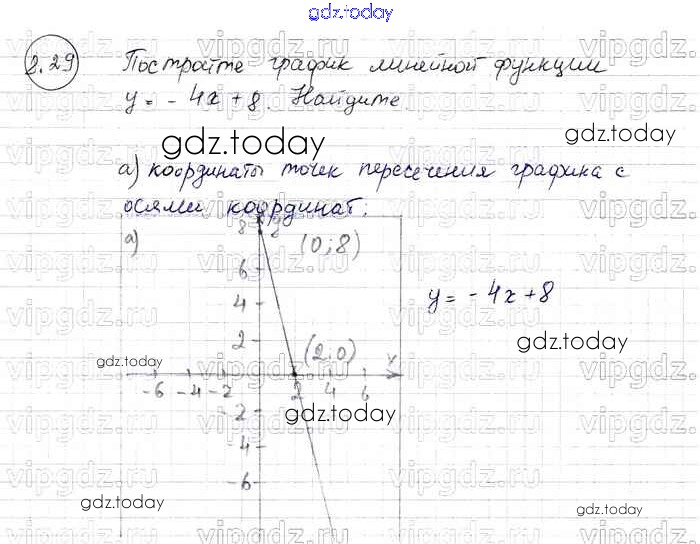 gdz.today
2.29 Постройте график линейной функции
y = - 4x + 8. Найдите
gdz.today
gdz.today
а) координаты точек пересечения графика с
осями координат:
а) 8 y (0; 8)
6
4
y = - 4x + 8
2 (2. 0) x
gdz.today
gdz.today
-6 -4 -2 2 4 6
-2 gdz.today
-4
-6
gdz.today
gdz.today
vipgdz.ru